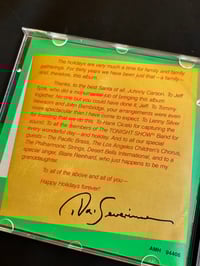 The holidays are very much a time for family and family
gatherings. For thirty years we have been just that – a family –
and, therefore, this album.
Thanks, to the best Santa of all, Johnny Carson. To Jeff
Tyzik, who did a monumental job of bringing this album
together. No one but you could have done it, Jeff. To Tommy
Newsom and John Bambridge, your arrangements were even
more spectacular than I have come to expect. To Larry Silver
for insisting that we do this. To Hank Cicalo for capturing the
sound. To all the members of The TONIGHT SHOW Band for
every wonderful day – and holiday. And to all our special
guests – The Pacific Brass, The Los Angeles Children's Chorus,
The Philharmonic Strings, Desert Bells International, and to a
special singer, Blaire Reinhard, who just happens to be my
granddaughter.
To all of the above and all of you –
Happy Holidays forever!
Doc Severinsen
AMH 94406